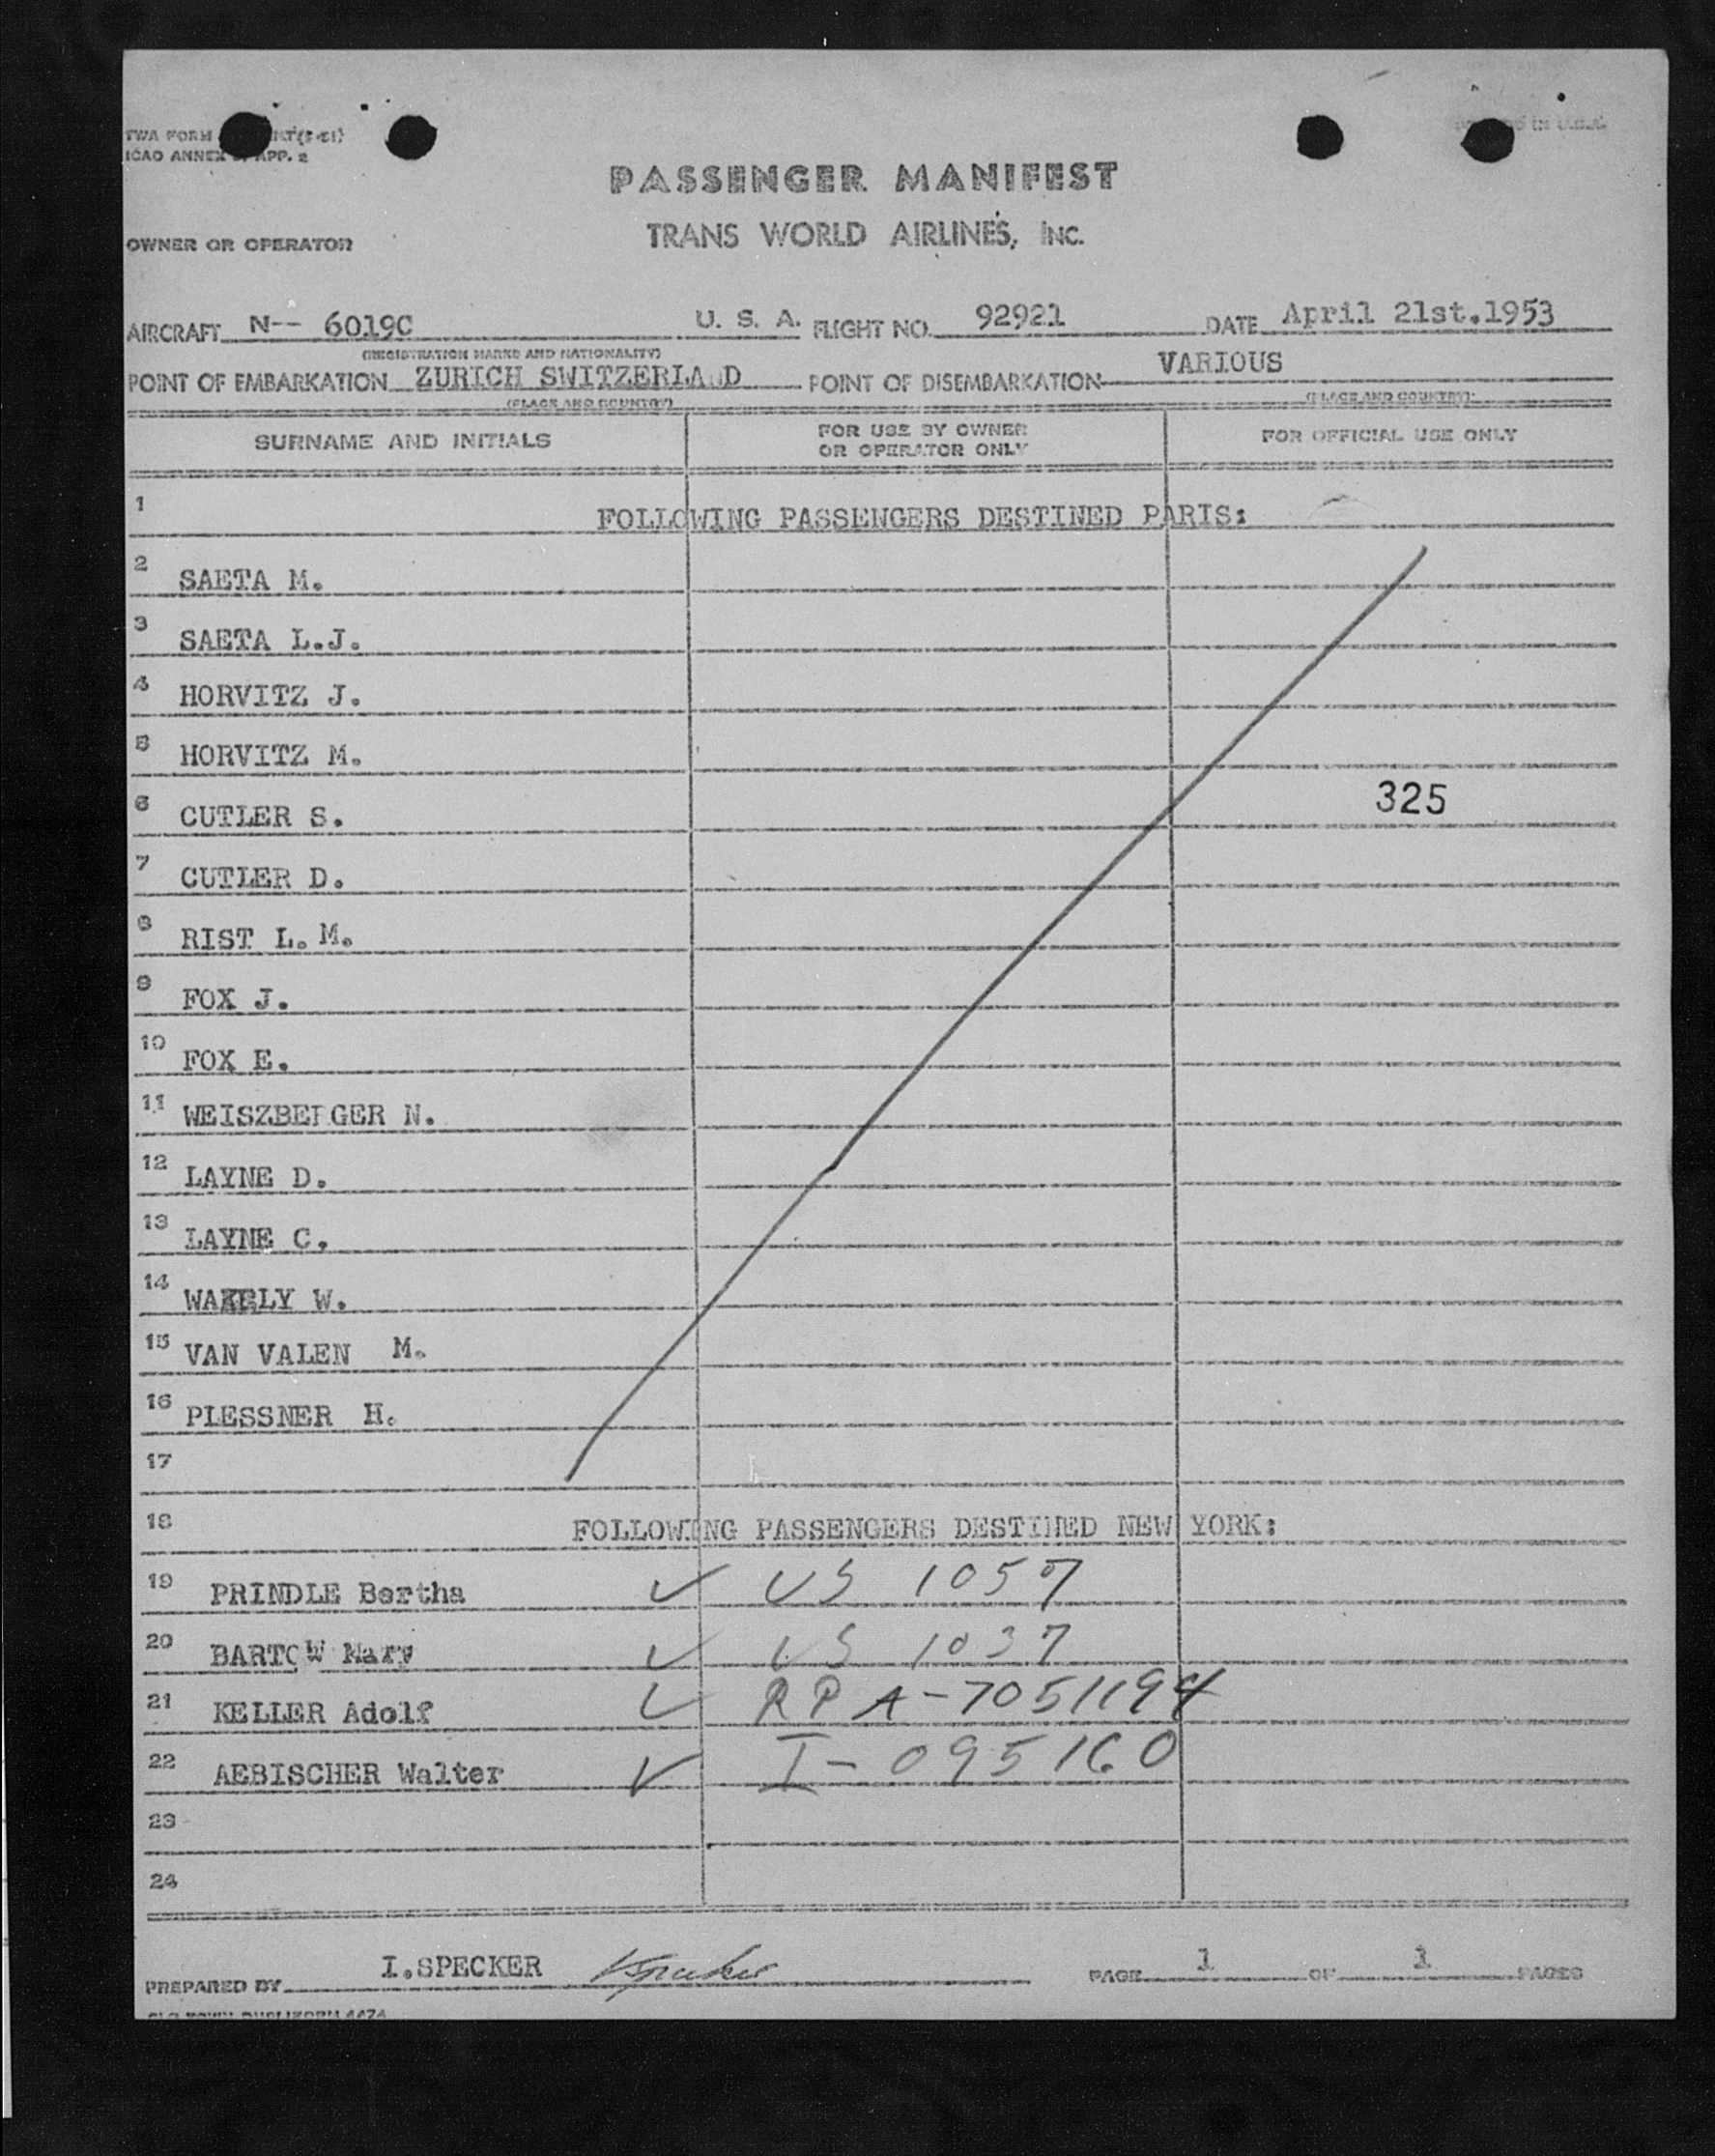 TWA FORM
ICAO ANNEX APP. 2
IN U.S.A.
PASSENGER MANIFEST
OWNER OR OPERATOR TRANS WORLD AIRLINES, INC.
AIRCRAFT N-- 6019C U. S. A. FLIGHT NO. 92921 DATE April 21st.1953
(REGISTRATION MARKS AND NATIONALITY)
POINT OF EMBARKATION ZURICH SWITZERLAND POINT OF DISEMBARKATION VARIOUS
(PLACE AND COUNTRY) (PLACE AND COUNTRY)
SURNAME AND INITIALS FOR USE BY OWNER OR OPERATOR ONLY FOR OFFICIAL USE ONLY
1 FOLLOWING PASSENGERS DESTINED PARIS:
2 SAETA M.
3 SAETA L.J.
4 HORVITZ J.
5 HORVITZ M.
6 CUTLER S. 325
7 CUTLER D.
8 RIST L. M.
9 FOX J.
10 FOX E.
11 WEISZBERGER N.
12 LAYNE D.
13 LAYNE C.
14 WAKELY W.
15 VAN VALEN M.
16 PLESSNER H.
17
18 FOLLOWING PASSENGERS DESTINED NEW YORK:
19 PRINDLE Bertha ✓ US 1057
20 BARTOW Mary ✓ US 1037
21 KELLER Adolf ✓ RP A-7051194
22 AEBISCHER Walter ✓ I-095160
23
24
PREPARED BY I.SPECKER ISpecker PAGE 1 OF 1 PAGES